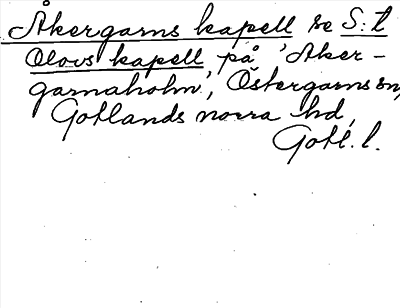 Åkergarns kapell se S:t
Olovs kapell på 'Aker-
garnaholm', Östergarns sn,
Gotlands norra hd,
Gotl. l.